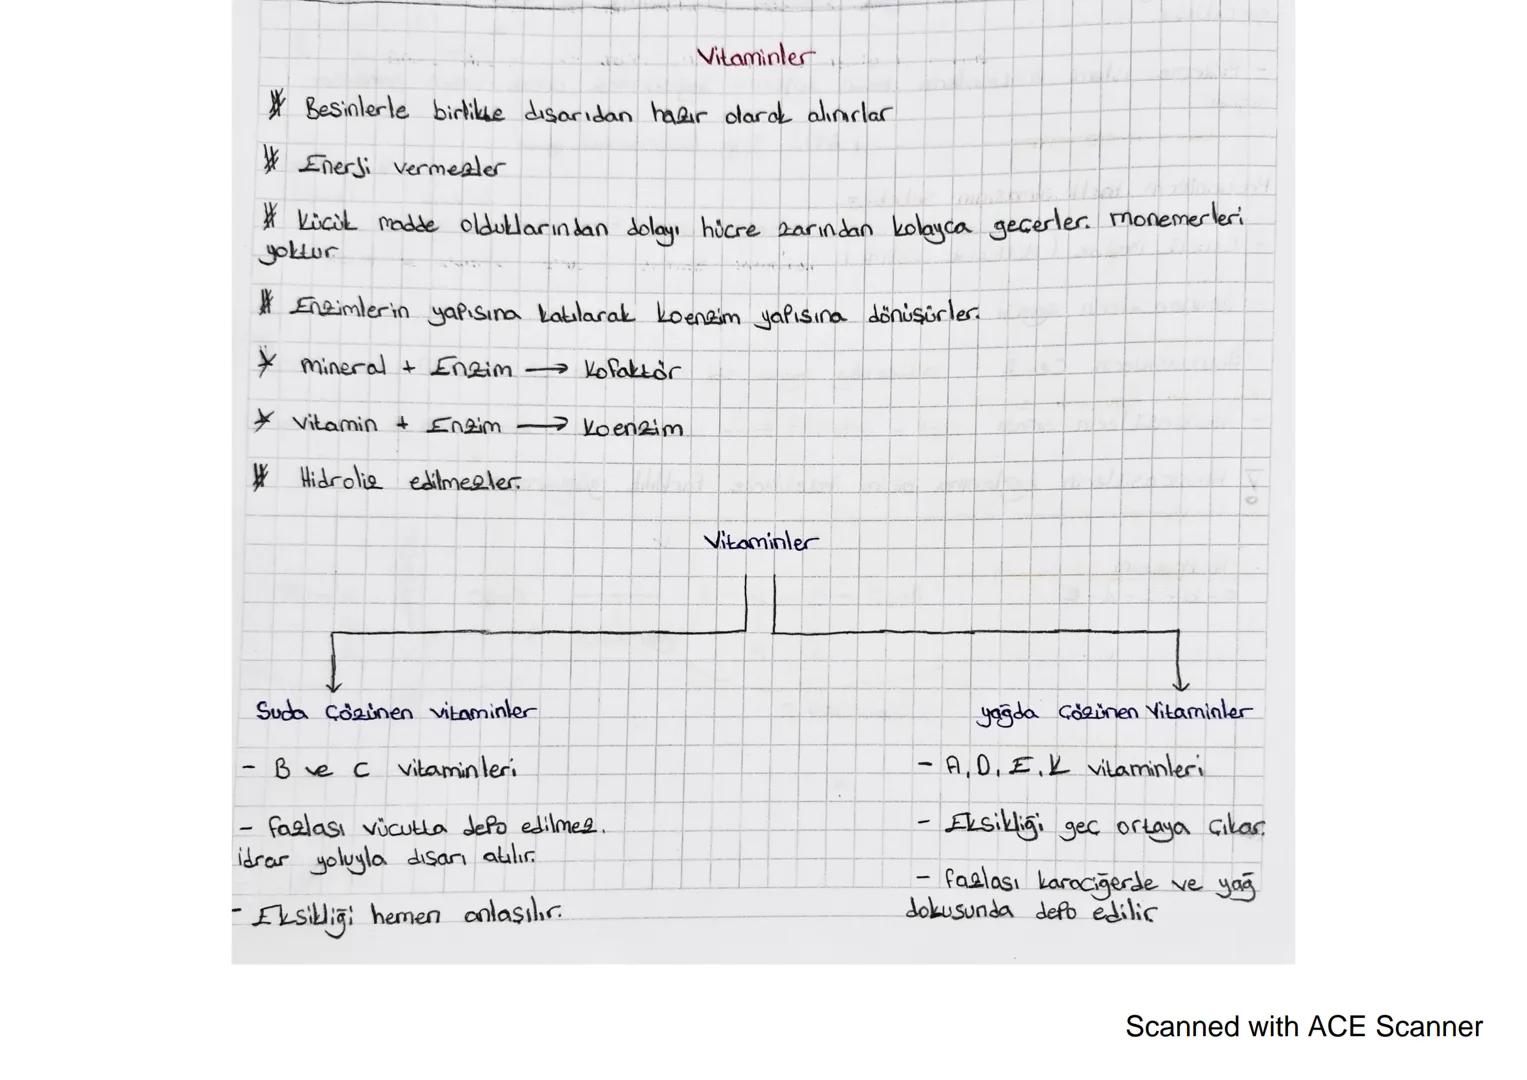 Vitaminler
* Besinlerle birlikte dışarıdan hazır olarak alınırlar
* Enerji vermezler
* Küçük madde olduklarından dolayı hücre zarından kolayca geçerler. monemerleri
yoktur
* Enzimlerin yapısına katılarak koenzim yapısına dönüşürler.
* mineral + Enzim → Kofaktör
* vitamin + Enzim → Koenzim
* Hidroliz edilmezler.
Vitaminler
Suda Çözünen vitaminler
- B ve C vitaminleri
- fazlası vücutta depo edilmez.
idrar yoluyla dışarı atılır.
- Eksikliği hemen anlaşılır.
yağda Çözünen Vitaminler
- A, D, E, K vitaminleri
- Eksikliği geç ortaya çıkar.
- fazlası karaciğerde ve yağ
dokusunda depo edilir
Scanned with ACE Scanner